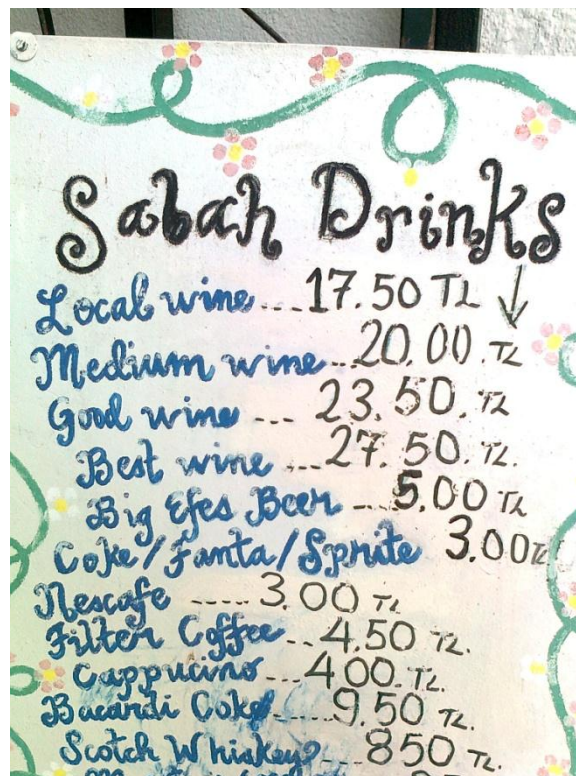 Sabah Drinks
Local wine...17.50 TL
Medium wine...20.00.TL
Good wine ... 23.50.TL
Best wine ...27.50.TL.
Big Efes Beer ...5.00 TL
Coke/Fanta/Sprite 3.00TL
Nescafe ....3.00 TL
Filter Coffee...4.50 TL.
Cappucino ...4.00.TL.
Bacardi Coke.....9.50 TL.
Scotch Whiskey...850 TL.